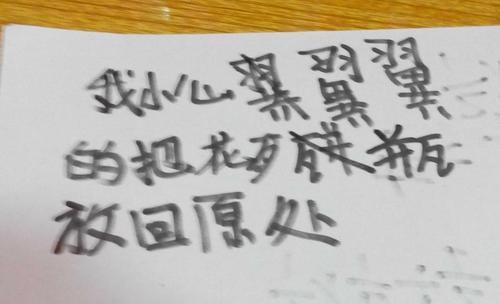 我小心翼翼翼
的把花瓶
放回原处